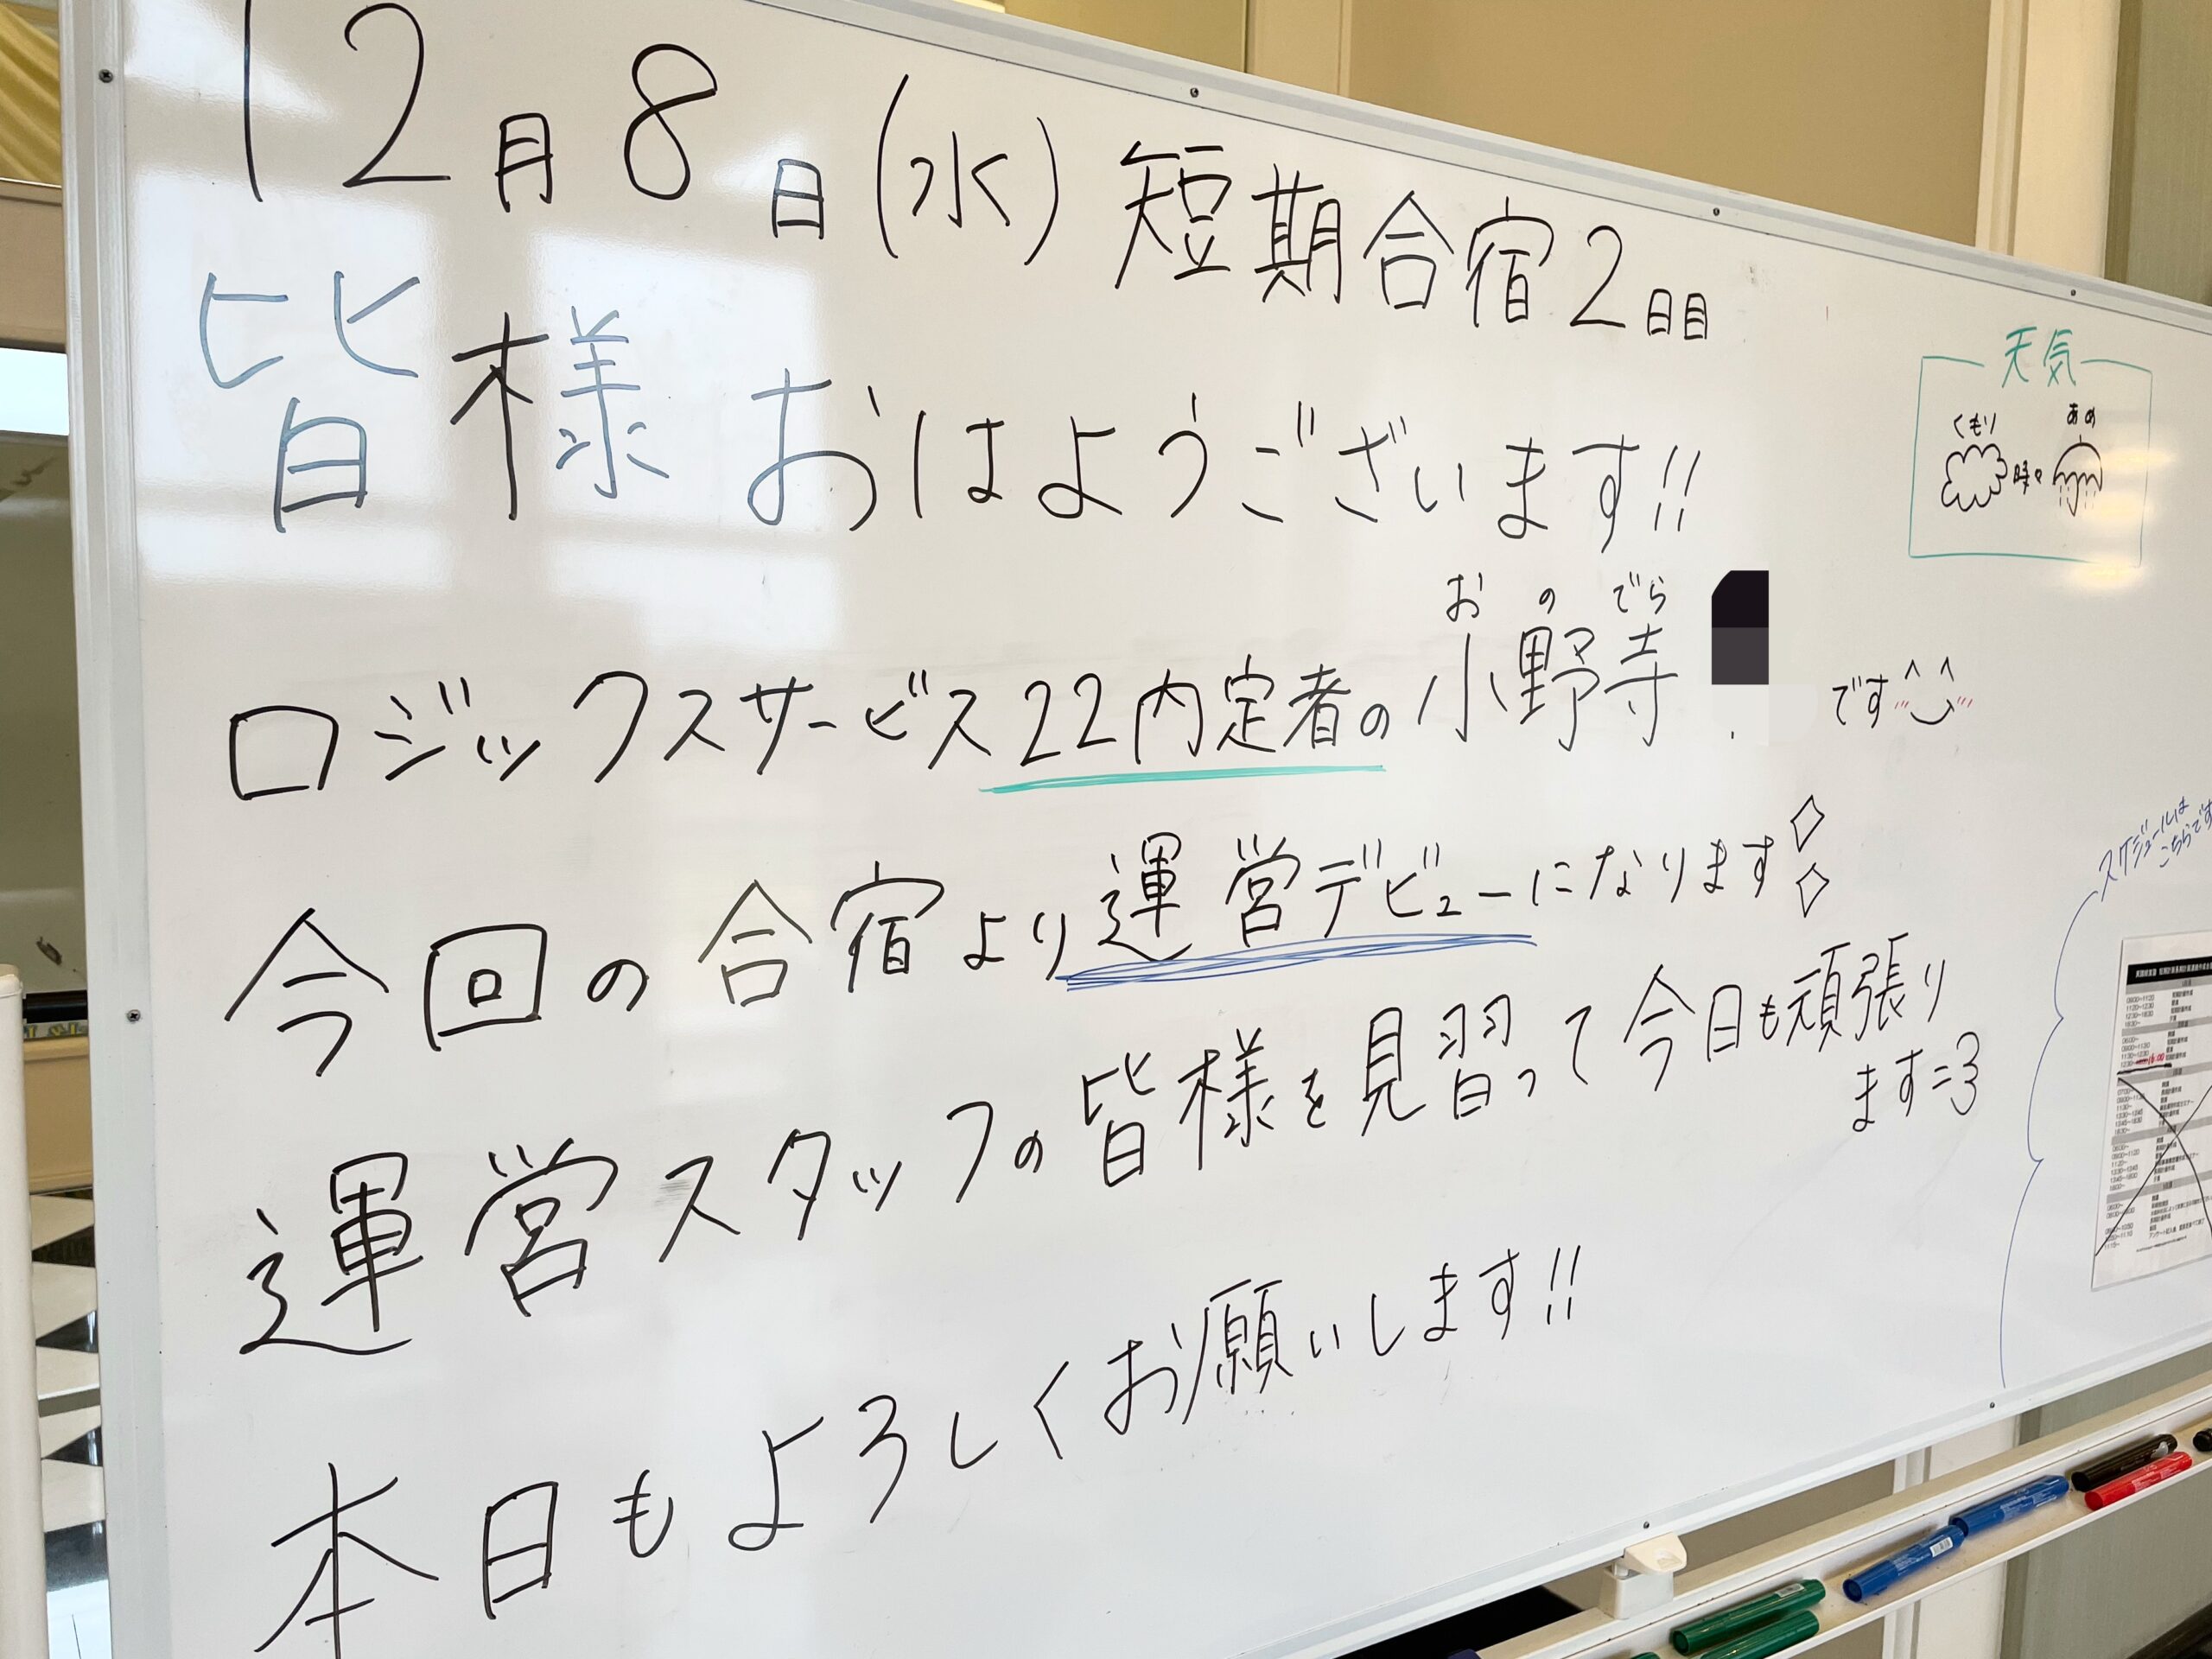 12月8日(水)短期合宿2日目
皆様おはようございます!!
おのでら
ロジックスサービス22内定者の小野寺
です^‿^
今回の合宿より運営デビューになります
運営スタッフの皆様を見習って今日も頑張り
ます=3
本日もよろしくお願いします!!
天気
くもり あめ
時々
スケジュールは
こちらです